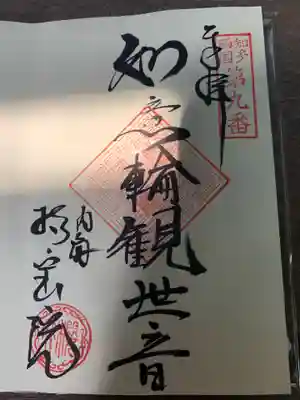 知多
西国 第九番
奉拝
如意輪観世音
内海
持宝院